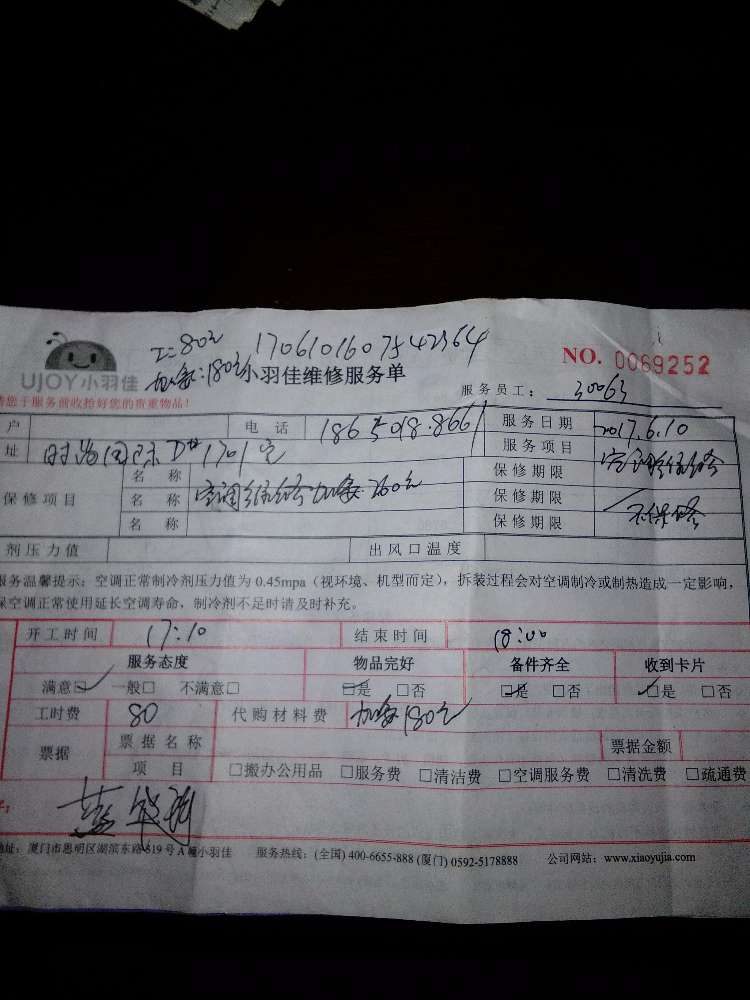 工=80元 1706101607542364
加氟:180元 小羽佳维修服务单
UJOY小羽佳
NO. 0069252
请您于服务前收拾好您的贵重物品!
服务员工: 30063
户 电话 服务日期 2017.6.10
址 1701室 服务项目 空调维修
保修项目 名称 保修期限
名称 空调维修加氟 260元 保修期限 不保修
名称 保修期限
剂压力值 出风口温度
服务温馨提示:空调正常制冷剂压力值为 0.45mpa(视环境、机型而定),拆装过程会对空调制冷或制热造成一定影响,
保空调正常使用延长空调寿命,制冷剂不足时请及时补充。
开工时间 17:10 结束时间 18:00
服务态度 物品完好 备件齐全 收到卡片
满意☑ 一般□ 不满意□ ☑是 □否 ☑是 □否 ☑是 □否
工时费 80 代购材料费 加氟180元
票据 票据名称 票据金额
项目 □搬办公用品 □服务费 □清洁费 □空调服务费 □清洗费 □疏通费
地址:厦门市思明区湖滨东路319号A幢小羽佳 服务热线:(全国) 400-6655-888 (厦门) 0592-5178888 公司网站:www.xiaoyujia.com